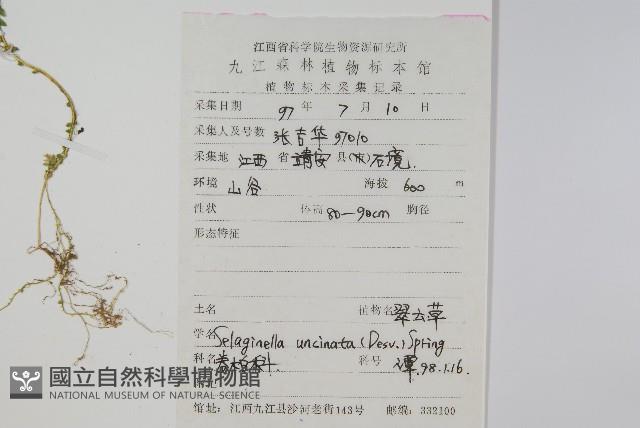 江西省科学院生物资源研究所
九江森林植物标本馆
植物标本采集记录
采集日期 97 年 7 月 10 日
采集人及号数 张吉华 97010
采集地 江西 省 靖安 县(市) 石境.
环境 山谷 海拔 600 m
性状 体高 80—90cm 胸径
形态特征
土名 植物名 翠云草
学名 Selaginella uncinata (Desv.) Spring
科名 卷柏科 科号 谭.98.1.16.
國立自然科學博物館
NATIONAL MUSEUM OF NATURAL SCIENCE
馆址: 江西九江县沙河老街143号 邮编: 332100